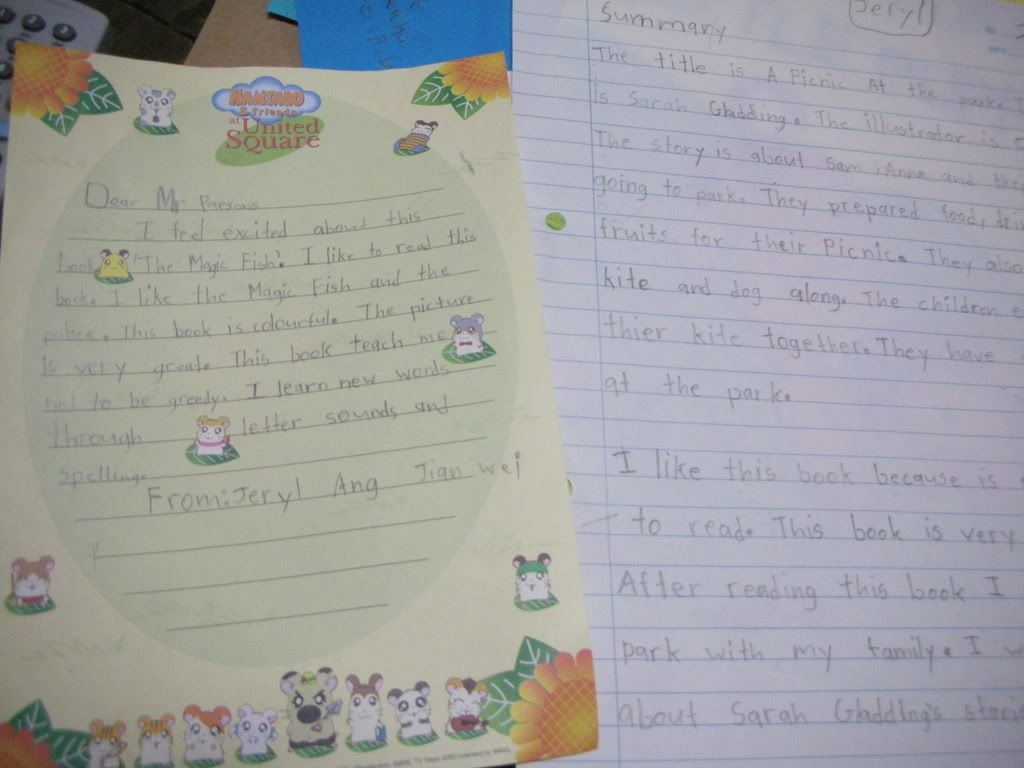 HAMTARO
& Friends
at United
Square
Dear Mr Parsons
I feel excited about this
book "The Magic Fish". I like to read this
book. I like the Magic Fish and the
palace. This book is colourful. The picture
is very great. This book teach me
not to be greedy. I learn new words
through letter sounds and
spelling.
From: Jeryl Ang Jian wei
Jeryl
Summary
The title is A Picnic At the park.
is Sarah Gladding. The illustrator is
The story is about Sam, Anna and
going to park. They prepared food,
fruits for their Picnic. They also
kite and dog along. The children
thier kite together. They have
at the park.
I like this book because is
to read. This book is very
After reading this book I
park with my family. I
about Sarah Gladding's